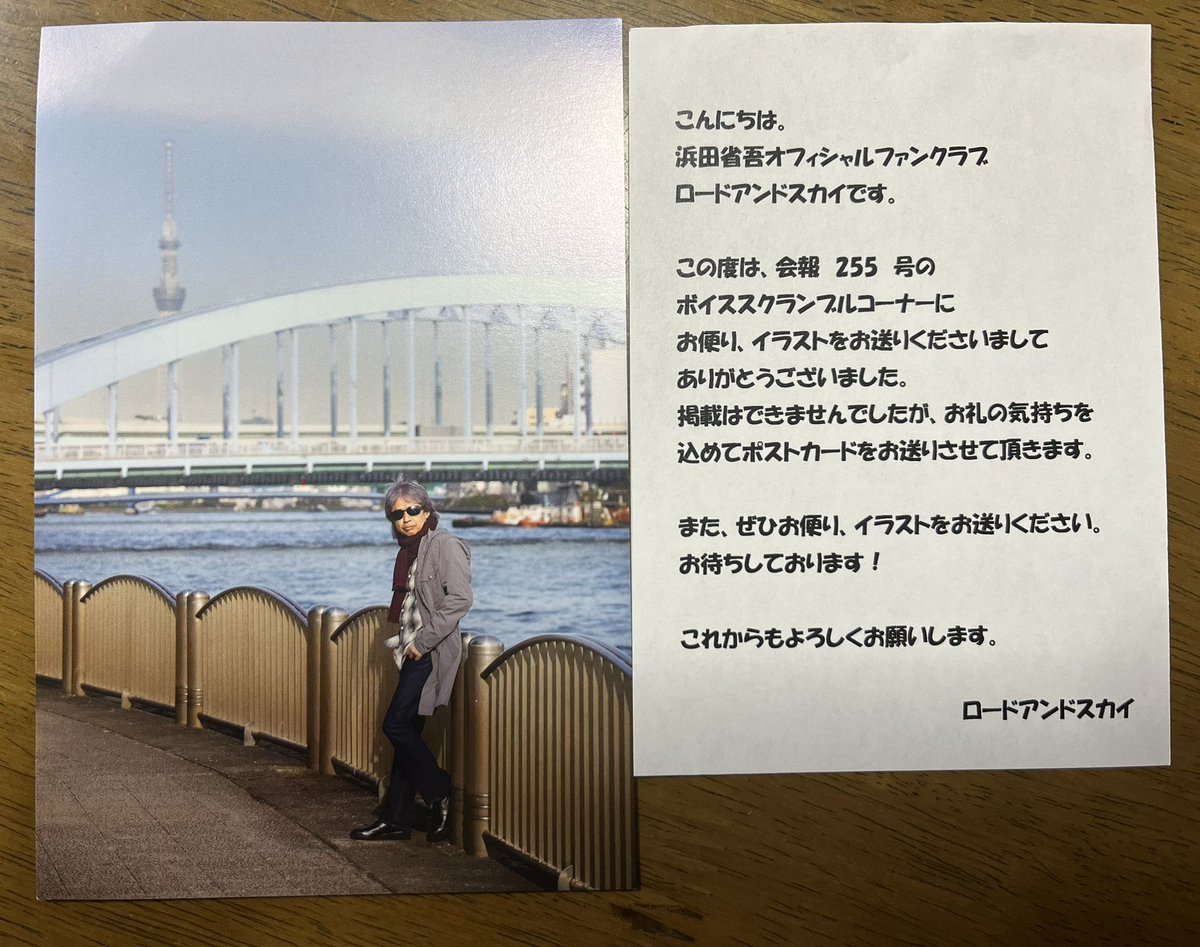 こんにちは。
浜田省吾オフィシャルファンクラブ
ロードアンドスカイです。
この度は、会報 255 号の
ボイススクランブルコーナーに
お便り、イラストをお送りくださいまして
ありがとうございました。
掲載はできませんでしたが、お礼の気持ちを
込めてポストカードをお送りさせて頂きます。
また、ぜひお便り、イラストをお送りください。
お待ちしております！
これからもよろしくお願いします。
ロードアンドスカイ